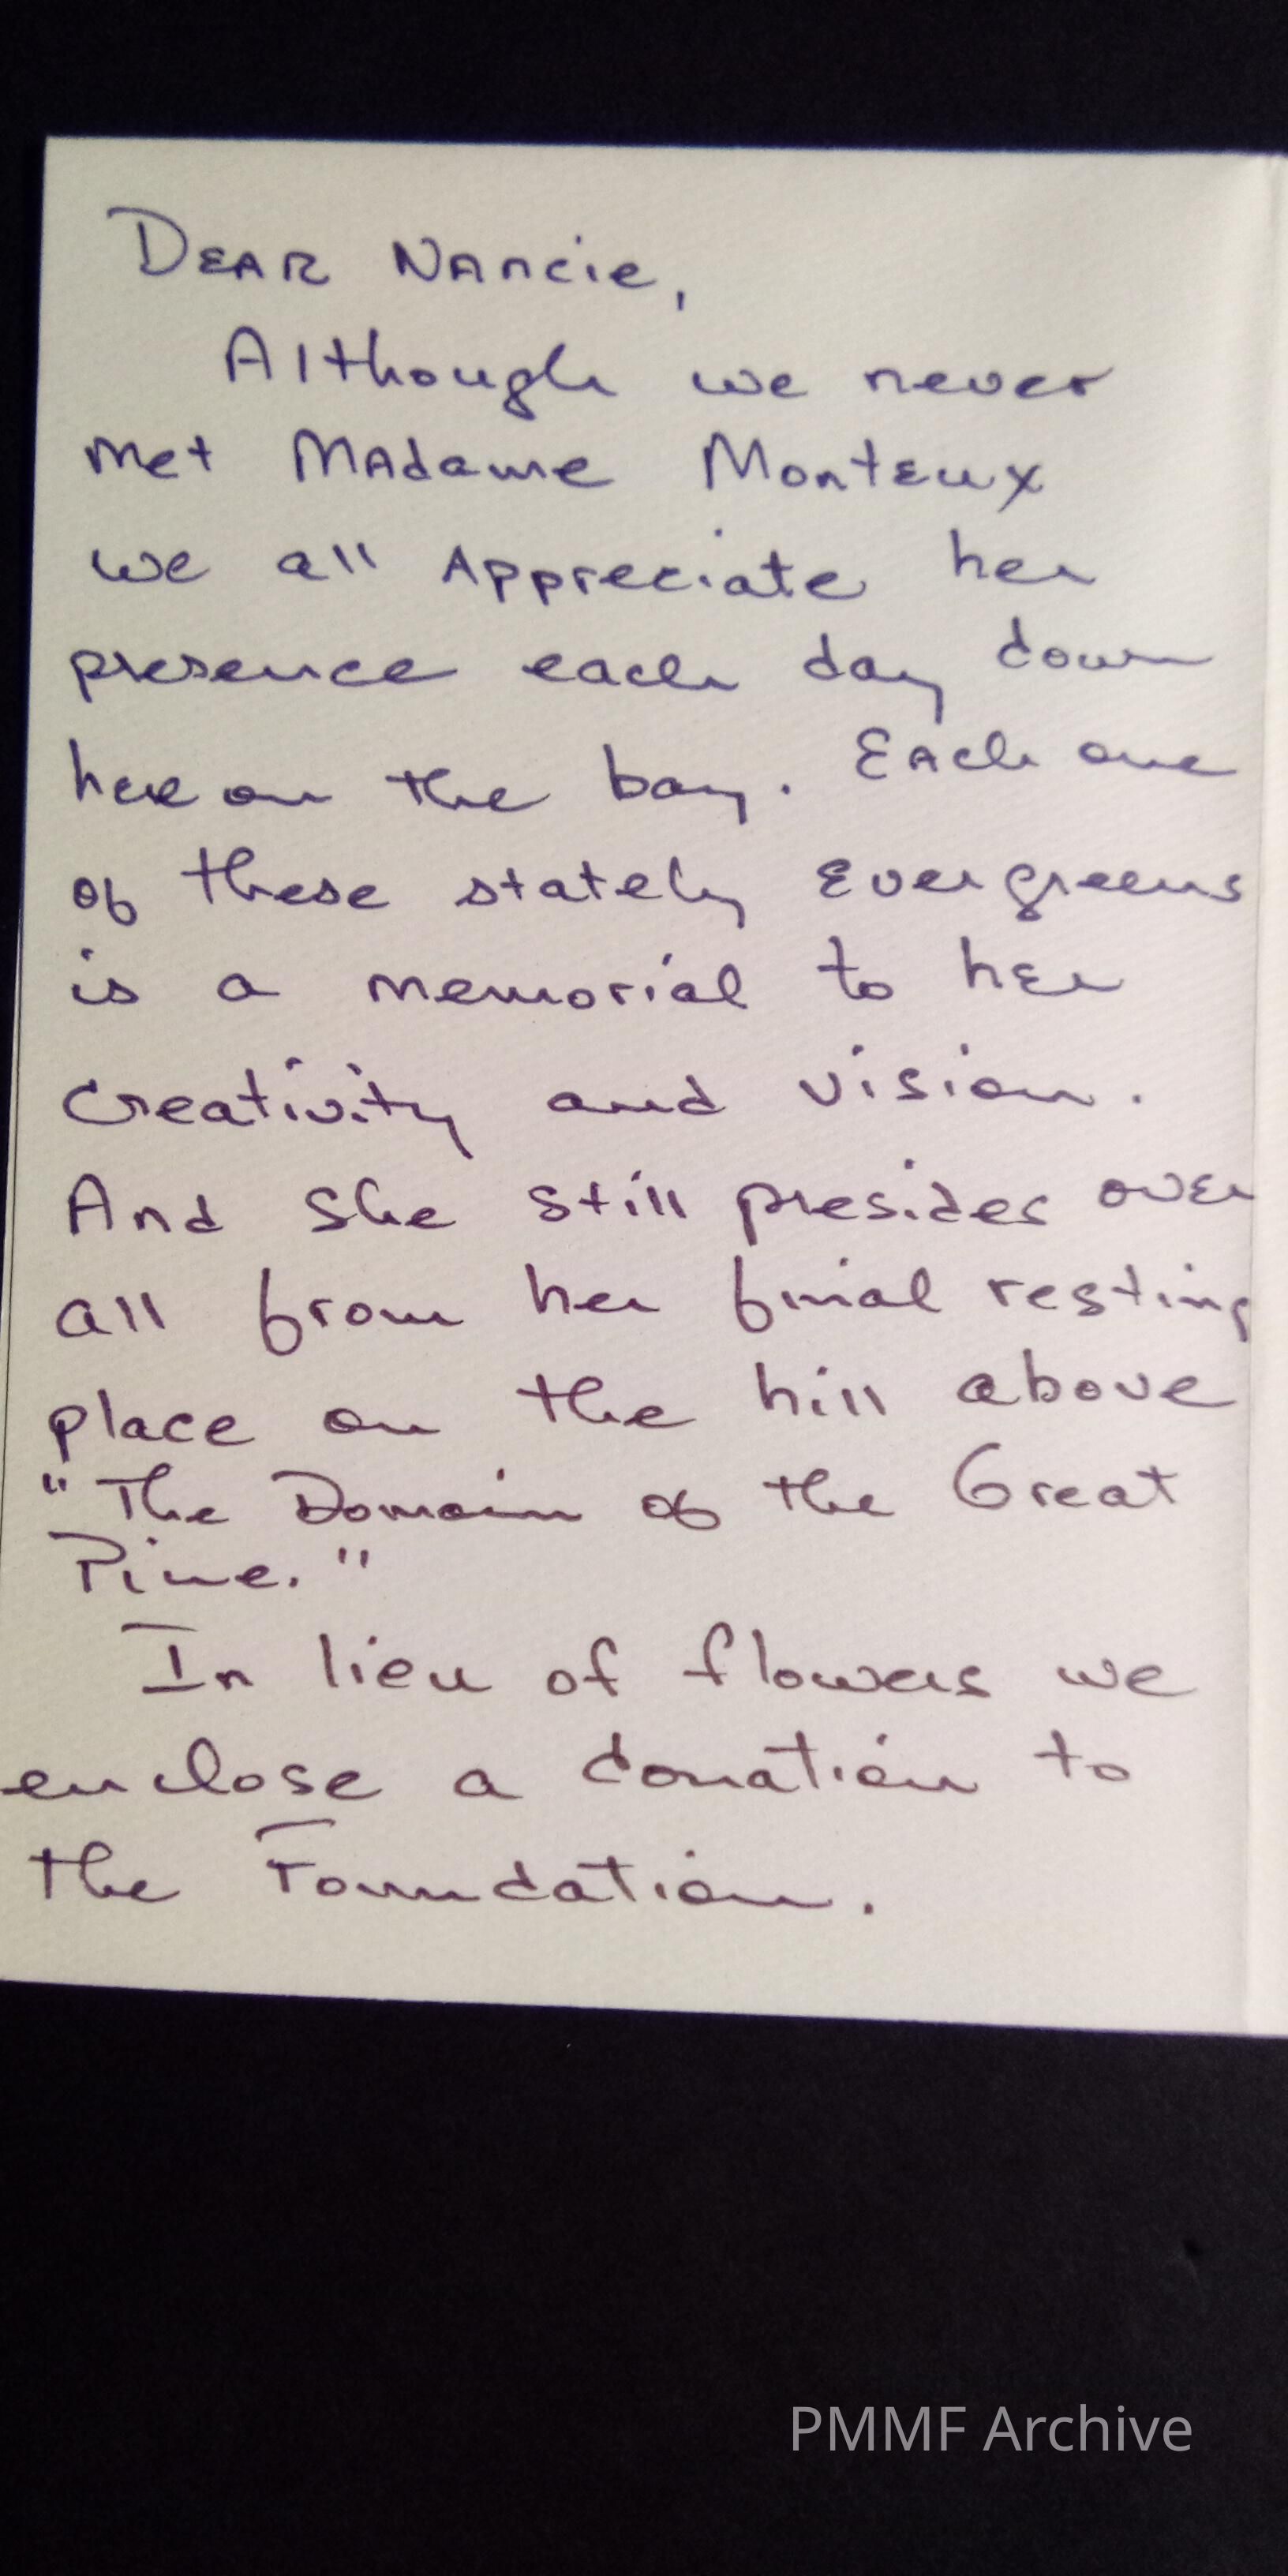 Dear Nancie,
Although we never
met Madame Monteux
we all Appreciate her
presence each day down
here on the bay. Each one
of these stately evergreens
is a memorial to her
creativity and vision.
And she still presides over
all from her final resting
place on the hill above
"The Domain of the Great
Pine."
In lieu of flowers we
enclose a donation to
the Foundation.
PMMF Archive